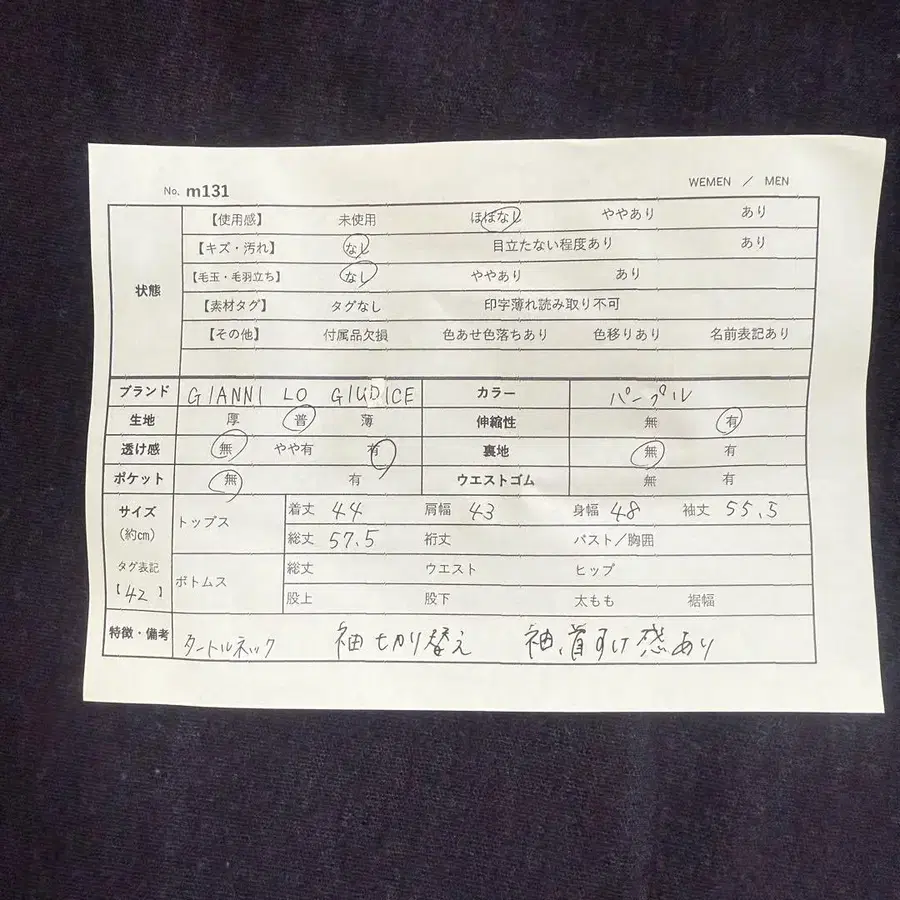 No. m131 WEMEN / MEN
状態 【使用感】 未使用 ほぼなし ややあり あり
【キズ・汚れ】 なし 目立たない程度あり あり
【毛玉・毛羽立ち】 なし ややあり あり
【素材タグ】 タグなし 印字薄れ読み取り不可
【その他】 付属品欠損 色あせ色落ちあり 色移りあり 名前表記あり
ブランド GIANNI LO GIUDICE カラー パープル
生地 厚 普 薄 伸縮性 無 有
透け感 無 やや有 有 裏地 無 有
ポケット 無 有 ウエストゴム 無 有
サイズ (約cm) トップス 着丈 44 肩幅 43 身幅 48 袖丈 55.5
総丈 57.5 裄丈 バスト/胸囲
タグ表記 【42】 ボトムス 総丈 ウエスト ヒップ
股上 股下 太もも 裾幅
特徴・備考 タートルネック 袖切り替え 袖、首すけ感あり